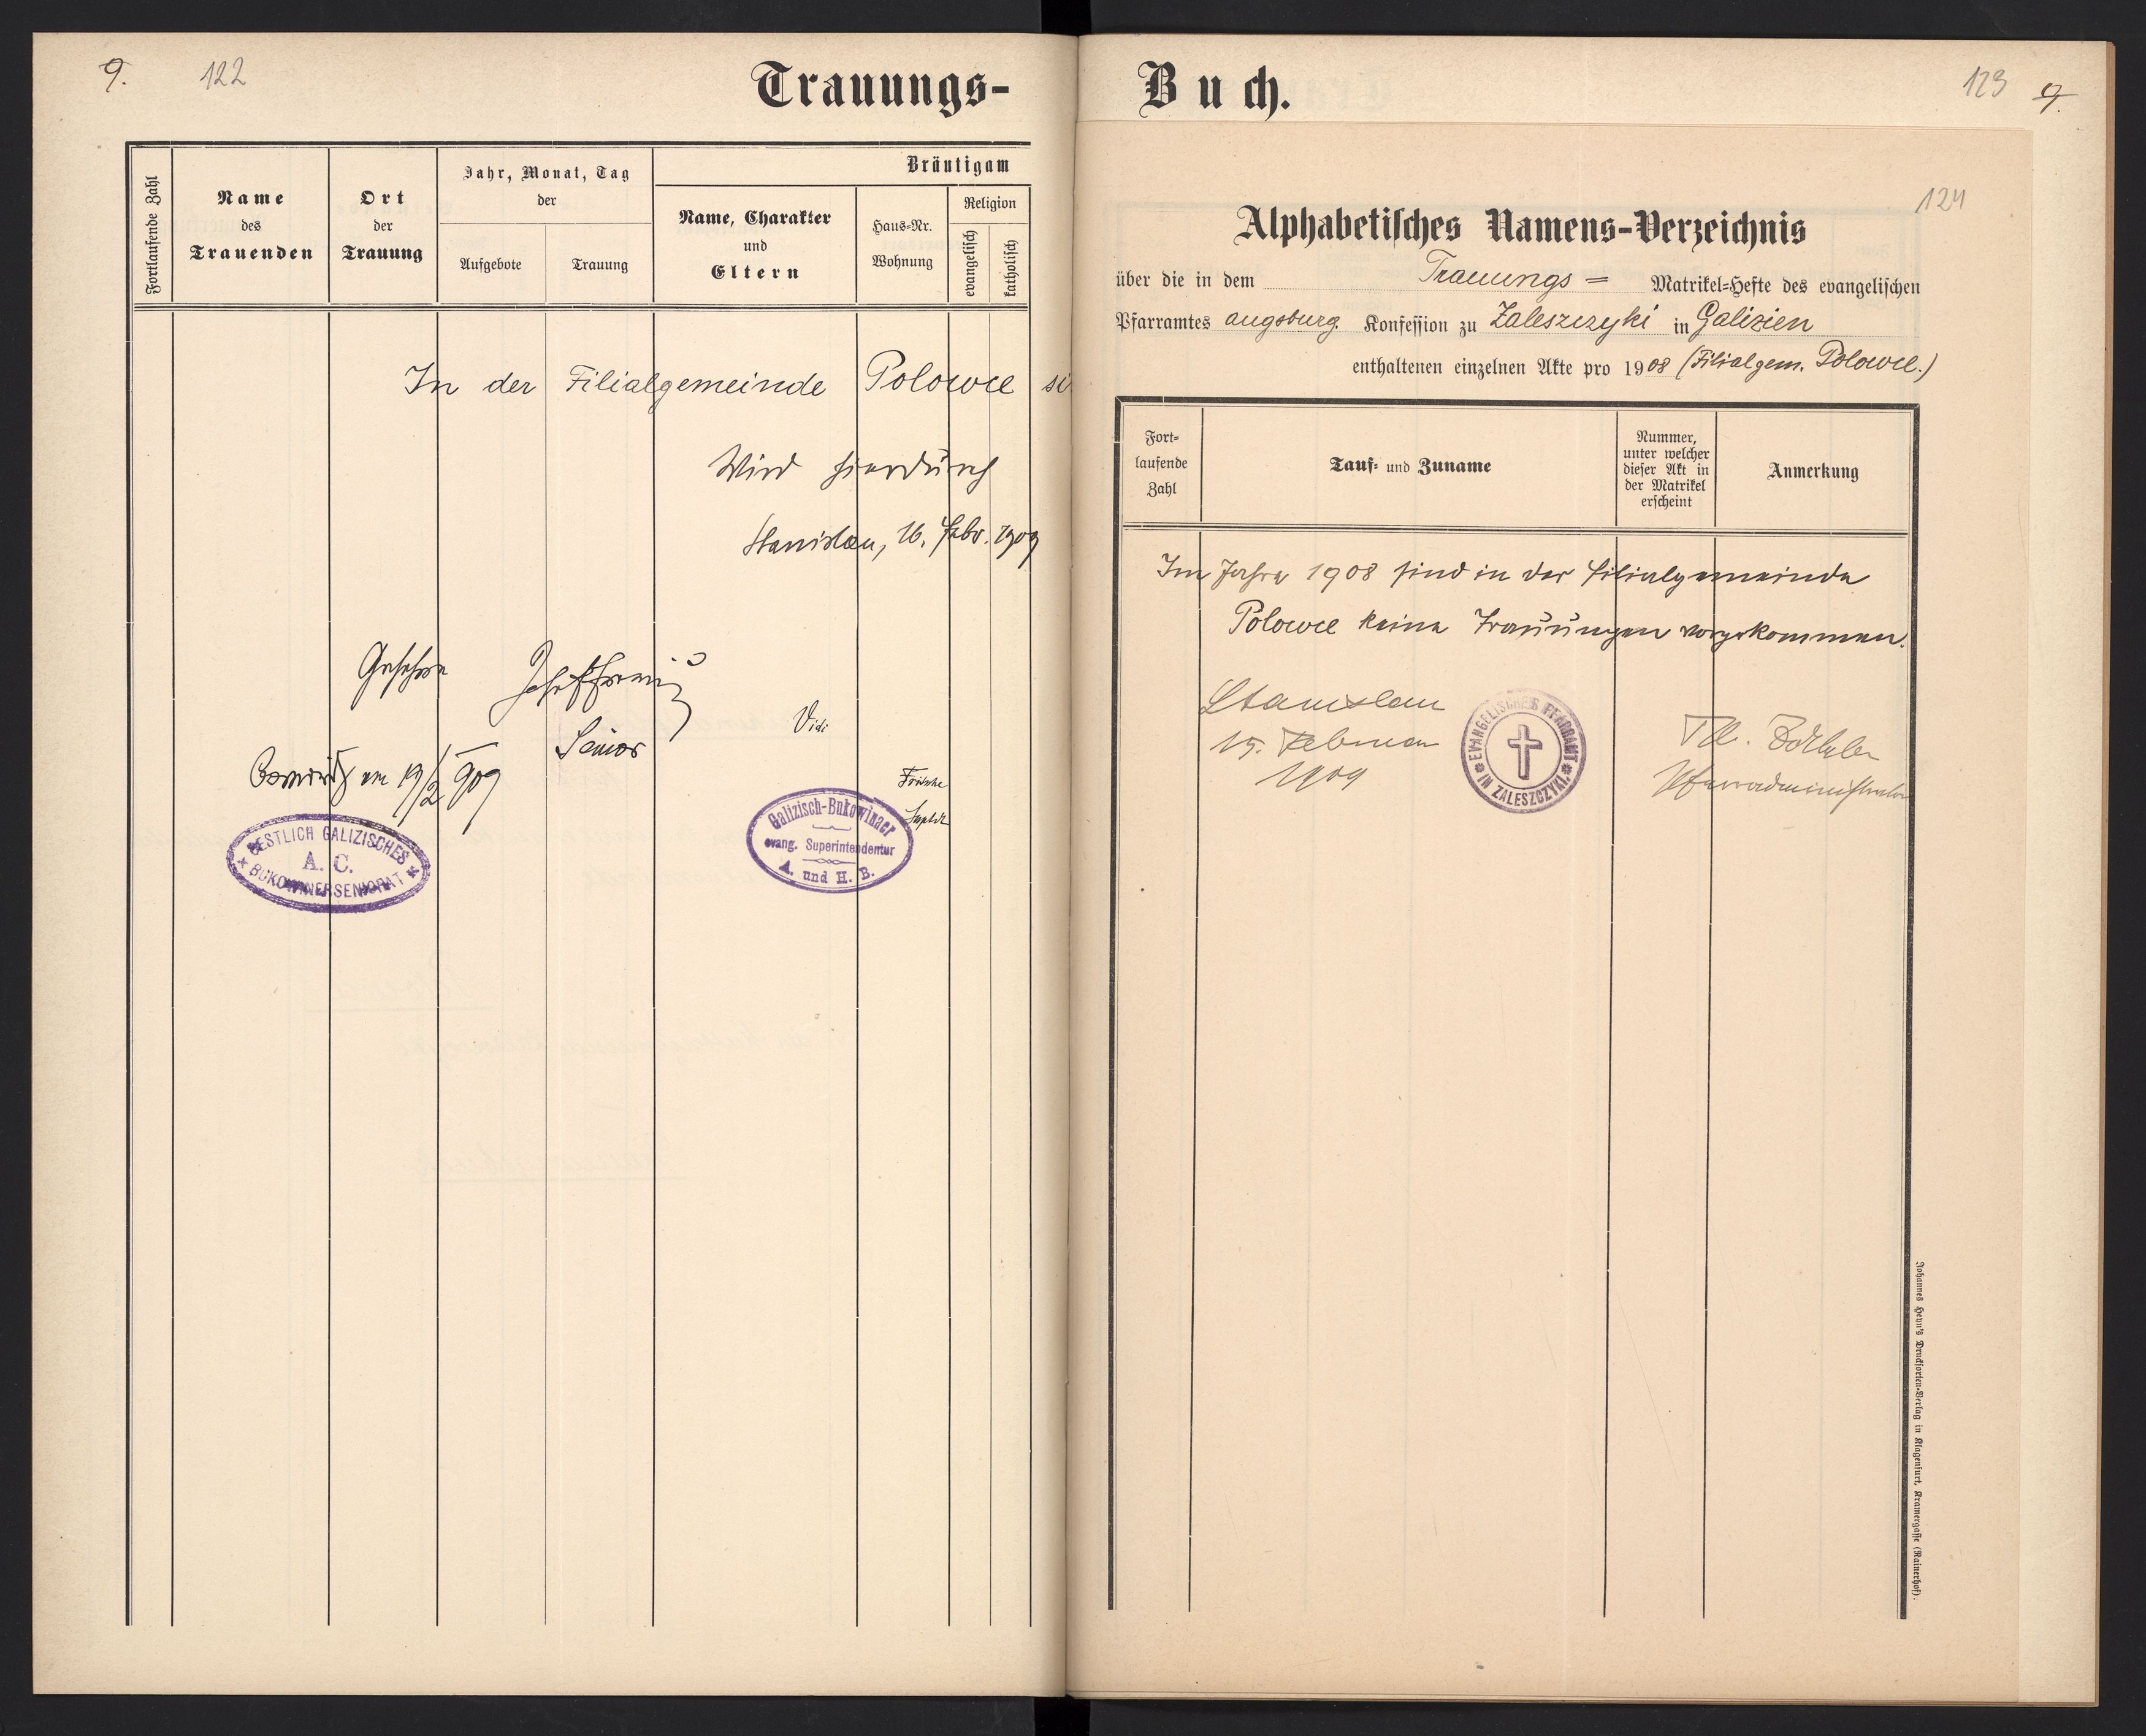 9. 122
Trauungs-
Fortlaufende Zahl
Name
des
Trauenden
Ort
der
Trauung
Jahr, Monat, Tag
der
Aufgebote
Trauung
Bräutigam
Name, Charakter
und
Eltern
Haus-Nr.
Wohnung
Religion
evangelisch
katholisch
In der Filialgemeinde Polowce
Wird hierdurch
Stanislau, 16. Febr. 1909
Gesehen
Senior
am 19/2 909
Vidi
OESTLICH GALIZISCHES
A. C.
BUKOWINERSENIORAT
Galizisch-Bukowinaer
evang. Superintendentur
A. und H. B.
Buch.
123 9.
124
Alphabetisches Namens-Verzeichnis
über die in dem Trauungs= Matrikel-Hefte des evangelischen
Pfarramtes augsburg. Konfession zu Zaleszczyki in Galizien
enthaltenen einzelnen Akte pro 1908 (Filialgem. Polowce.)
Fort-
laufende
Zahl
Tauf- und Zuname
Nummer,
unter welcher
dieser Akt in
der Matrikel
erscheint
Anmerkung
Im Jahre 1908 sind in der Filialgemeinde
Polowce keine Trauungen vorgekommen.
Stanislau
15. Februar
1909
EVANGELISCHES PFARRAMT
IN ZALESZCZYKI
Pfarradministrator
Johannes Heyn's Drucksorten-Verlag in Klagenfurt, Kramergasse (Rainerhof).